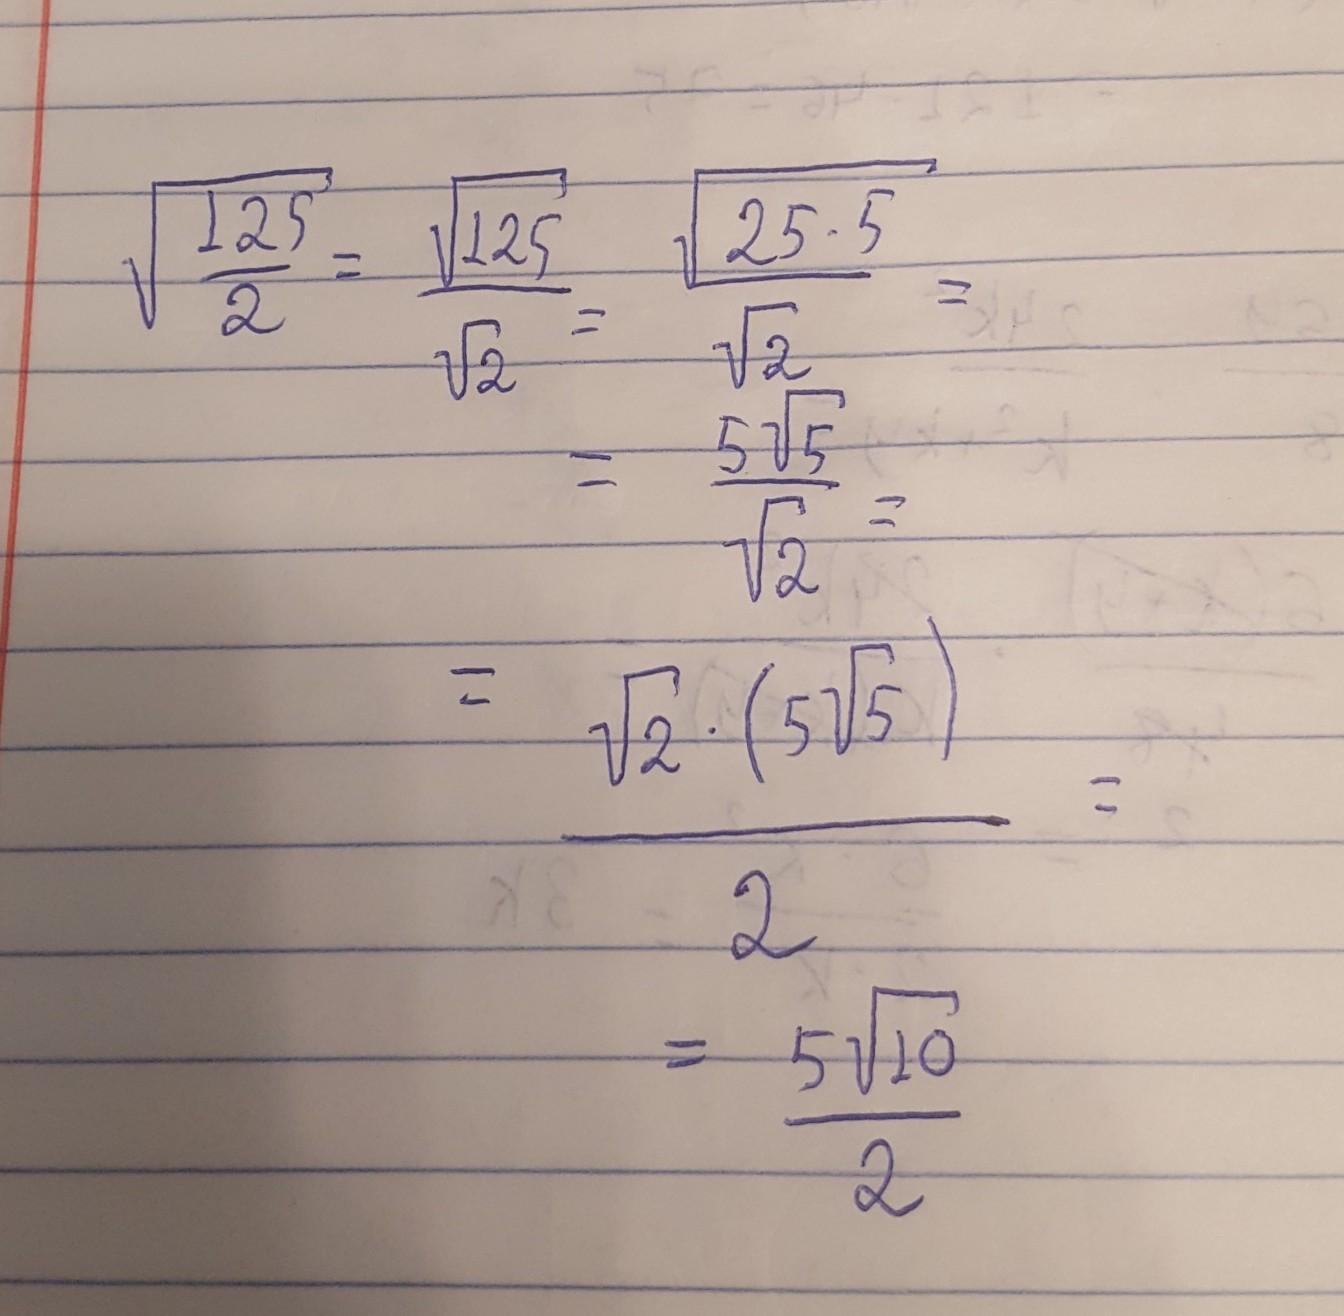 √(125/2) = √125/√2 = √(25·5)/√2 =
= 5√5/√2 =
= √2·(5√5)/2 =
= 5√10/2